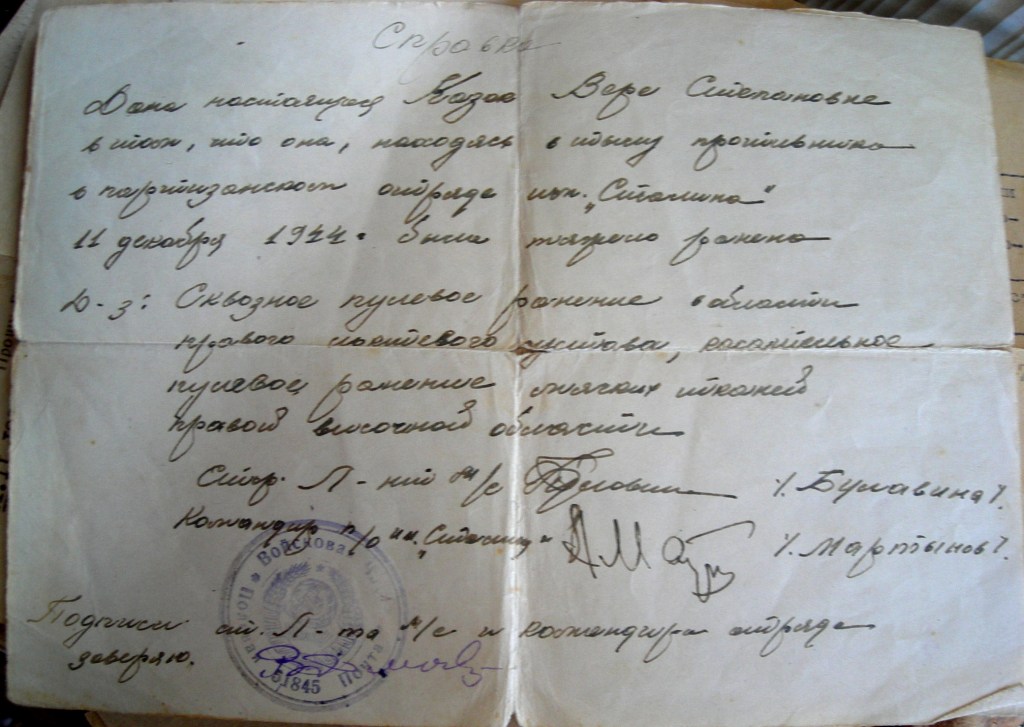 Справка
Дана настоящая Казак Вере Степановне
в том, что она, находясь в тылу противника
в партизанском отряде им. „Сталина"
11 декабря 1944. была тяжело ранена
Д-з: Сквозное пулевое ранение в области
правого локтевого сустава, касательное
пулевое ранение мягких тканей
правой височной области
Стар. Л-нт м/с /. Булавина /.
Командир п/о им. „Сталина" /. Мартынов /.
Подписи ст. Л-та м/с и командира отряда
заверяю.
Войсковая Часть
Полевая Почта
01845